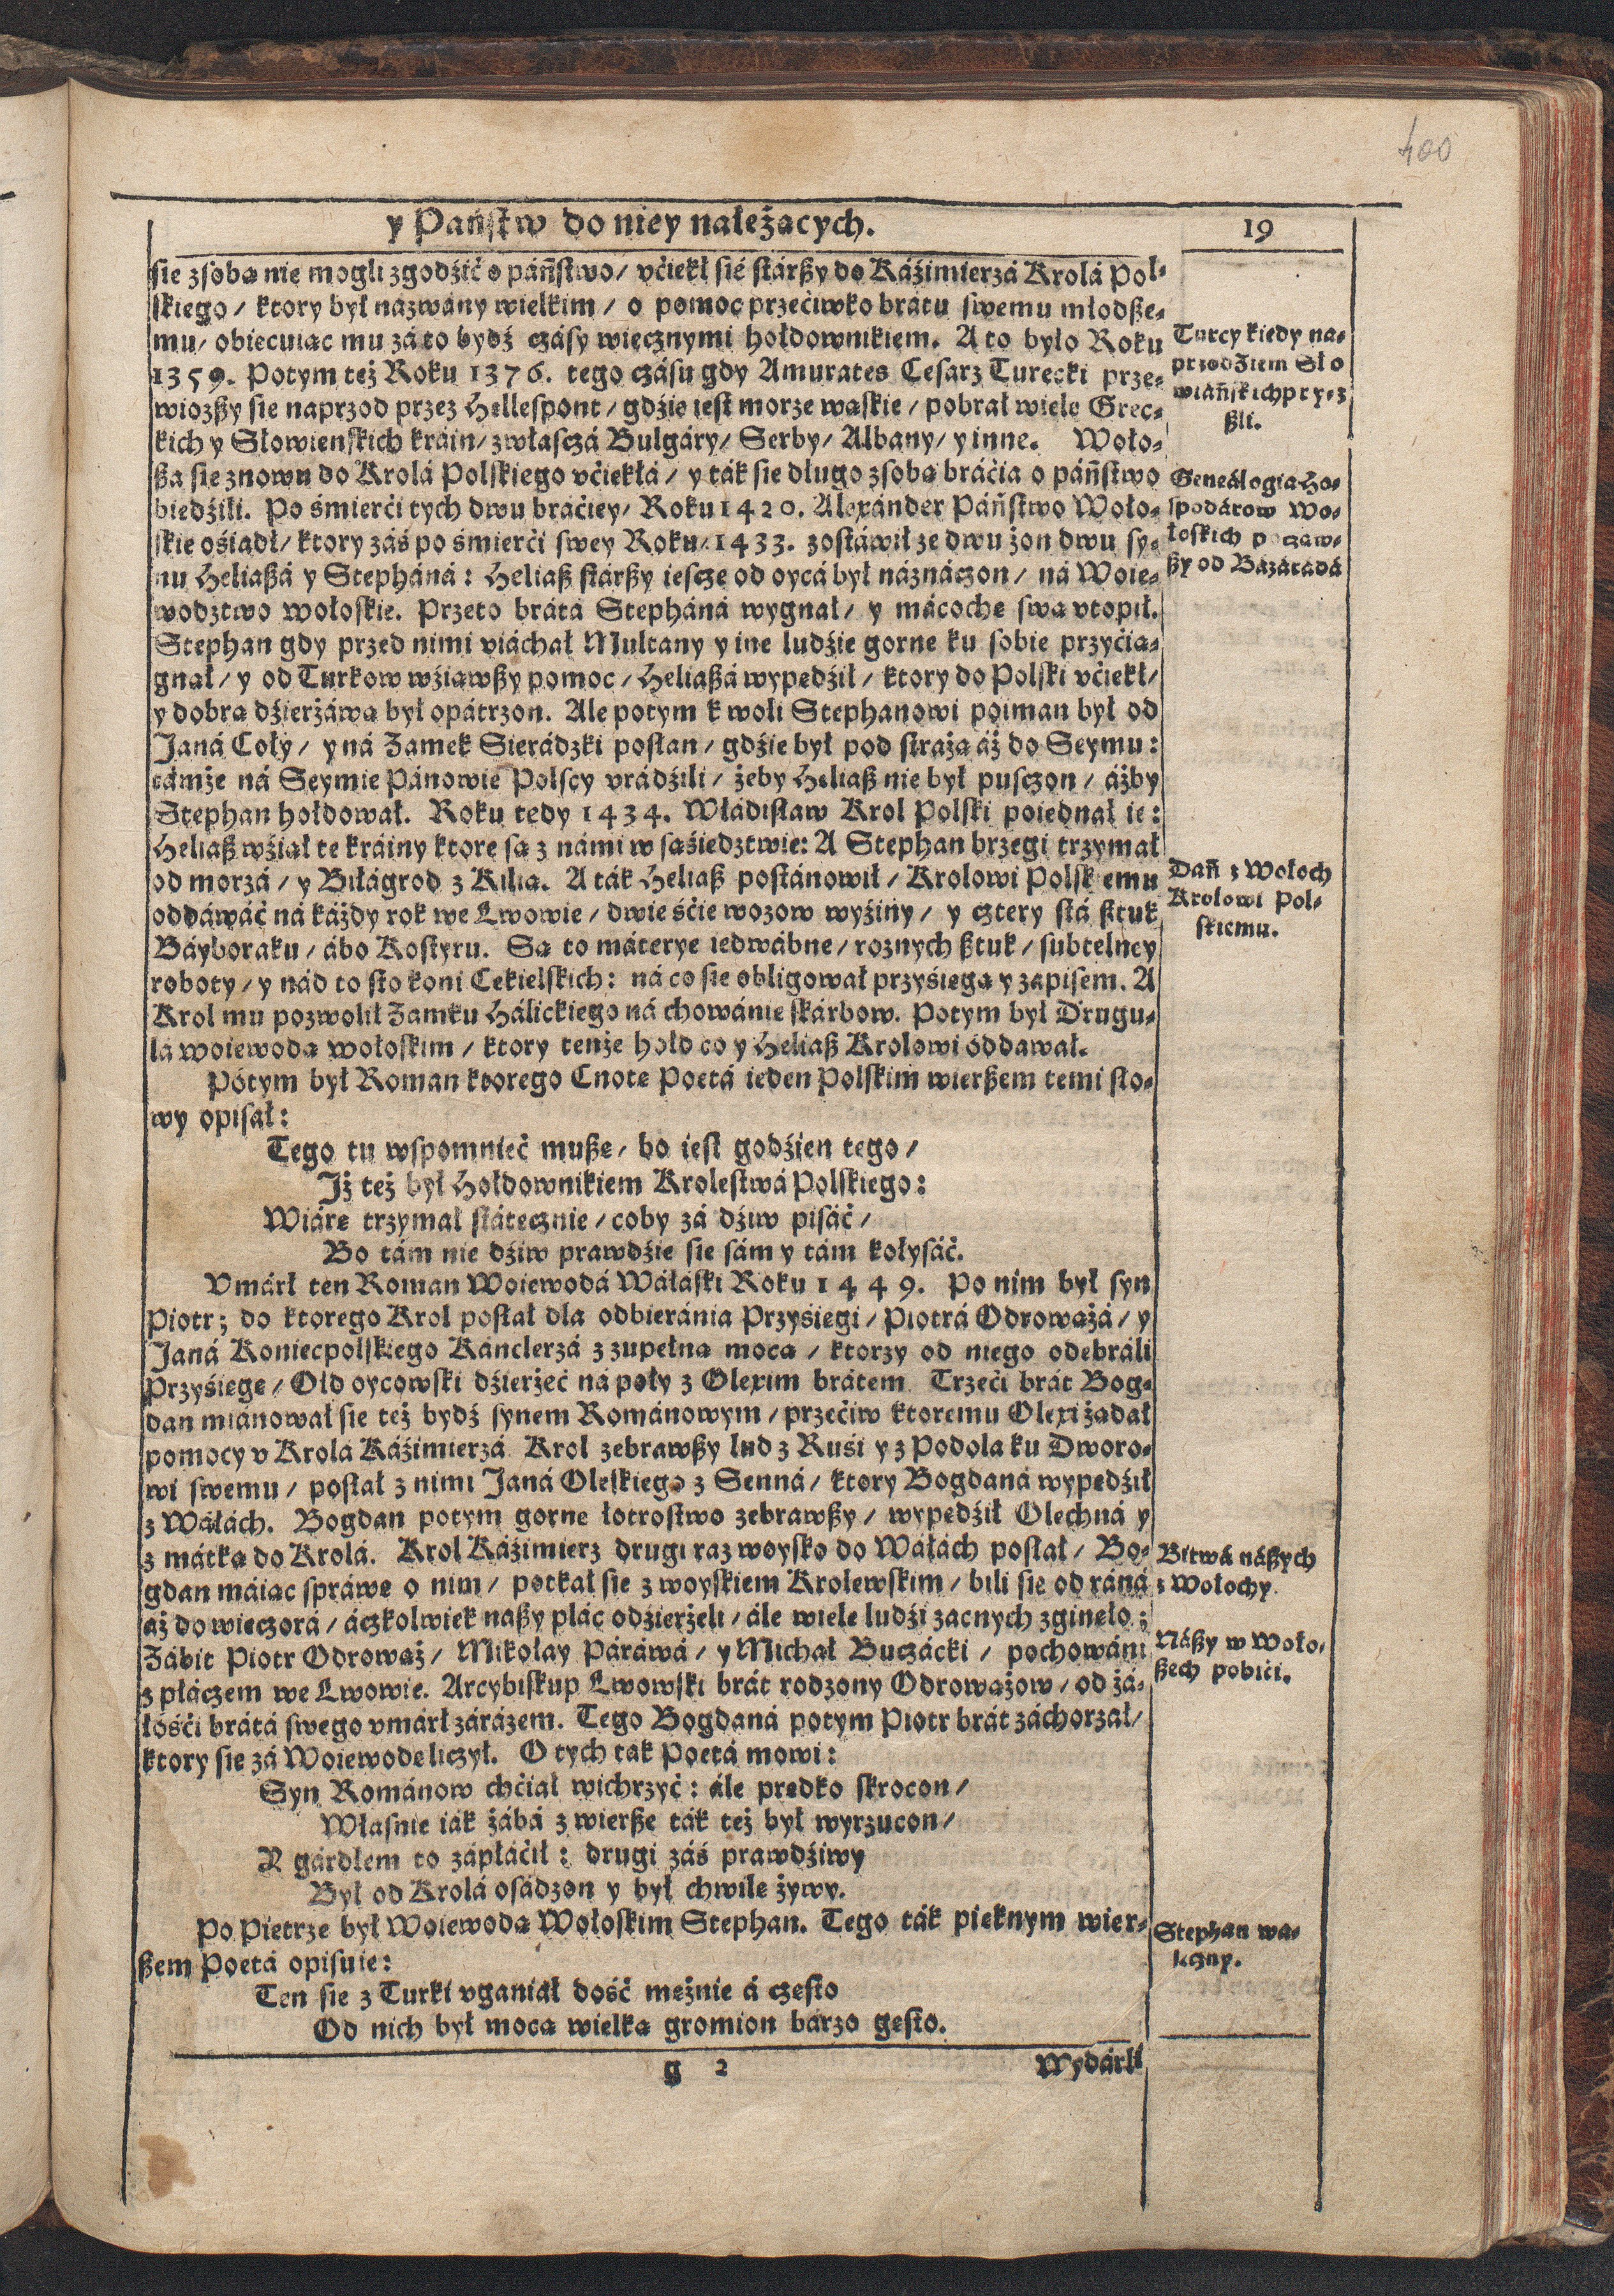 400
y Pańſtw do niey należących.
19
ſie z ſobą nie mogli zgodźić o páńſtwo / vćiekł ſię ſtárßy do Káźimierzá Krolá Pol-
ſkiego / ktory był názwány wielkim / o pomoc przećiwko brátu ſwemu młodße-
mu / obiecuiąc mu zá to bydź czáſy wiecznymi hołdownikiem. A to było Roku
1359. Potym też Roku 1376. tego czáſu gdy Amurates Ceſarz Turecki prze-
wiozßy ſie naprzod przez Helleſpont / gdźie ieſt morze wąſkie / pobrał wiele Grec-
kich y Słowienſkich kráin / zwłaſczá Bulgáry / Serby / Albany / y inne. Woło-
ßa ſie znowu do Krolá Polſkiego vćiekłá / y ták ſie długo z ſobą bráćia o páńſtwo
biedźili. Po śmierći tych dwu braćiey / Roku 1420. Alexánder Páńſtwo Woło-
ſkie ośiadł / ktory záś po śmierći ſwey Roku / 1433. zoſtáwił ze dwu żon dwu ſy-
nu Heliaßá y Stepháná: Heliaß ſtárßy ieſcze od oycá był náznáczon / ná Woie-
wodztwo wołoſkie. Przeto brátá Stepháná wygnał / y mácochę ſwą vtopił.
Stephan gdy przed nimi viáchał Multany y ine ludźie gorne ku ſobie przyćią-
gnął / y od Turkow wźiąwßy pomoc / Heliaßá wypędźił / ktory do Polſki vćiekł /
y dobrą dźierżáwą był opátrzon. Ale potym k woli Stephanowi poiman był od
Janá Coły / y ná Zamek Sierádzki poſłan / gdźie był pod ſtrażą áż do Seymu:
támże ná Seymie Pánowie Polſcy vrádźili / żeby Heliaß nie był puſczon / áżby
Stephan hołdował. Roku tedy 1434. Włádiſław Krol Polſki poiednał ie:
Heliaß wźiął te kráiny ktore ſą z námi w ſąśiedztwie: A Stephan brzegi trzymał
od morzá / y Biłágrod z Kilią. A ták Heliaß poſtánowił / Krolowi Polſkiemu
oddáwáć ná káżdy rok we Lwowie / dwie śćie wozow wyźiny / y cztery ſtá ſztuk
Báyboraku / ábo Koſtyru. Są to máterye iedwábne / roznych ßtuk / ſubtelney
roboty / y nád to ſto koni Cekielſkich: ná co ſie obligował przyśięgą y zapiſem. A
Krol mu pozwolił Zamku Hálickiego ná chowánie ſkárbow. Potym był Drugu-
lá woiewodą wołoſkim / ktory tenże hołd co y Heliaß Krolowi oddawał.
Potym był Roman ktorego Cnotę Poetá ieden Polſkim wierßem temi ſło-
wy opiſał:
Tego tu wſpomnieć mußę / bo ieſt godźien tego /
Jż też był Hołdownikiem Kroleſtwá Polſkiego:
Wiárę trzymał ſtátecznie / coby zá dźiw piſáć /
Bo tám nie dźiw prawdźie ſie ſám y tám kołyſáć.
Vmárł ten Roman Woiewodá Wáłáſki Roku 1449. Po nim był ſyn
Piotr; do ktorego Krol poſłał dla odbieránia Przyśięgi / Piotrá Odrowążá / y
Janá Koniecpolſkiego Kánclerzá z zupełną mocą / ktorzy od niego odebráli
Przyśięgę / Old oycowſki dźierżeć ná poły z Olexim brátem. Trzeći brát Bog-
dan miánował ſie też bydź ſynem Románowym / przećiw ktoremu Olexi żądał
pomocy v Krolá Káźimierzá. Krol zebrawßy lud z Ruśi y z Podola ku Dworo-
wi ſwemu / poſłał z nimi Janá Oleſkiego z Senná / ktory Bogdaná wypędźił
z Wáłách. Bogdan potym gorne łotroſtwo zebrawßy / wypędźił Olechná y
z mátką do Krolá. Krol Káźimierz drugi raz woyſko do Wáłách poſłał / Bo-
gdan máiąc ſpráwę o nim / potkał ſie z woyſkiem Krolewſkim / bili ſie od ráná
áż do wieczorá / áczkolwiek naßy plác odźierżeli / ále wiele ludźi zacnych zginęło;
Zábit Piotr Odrowąż / Mikołay Páráwá / y Michał Buczácki / pochowáni
z płáczem we Lwowie. Arcybiſkup Lwowſki brát rodzony Odrowążow / od żá-
łośći brátá ſwego vmárł zárázem. Tego Bogdaná potym Piotr brát záchorzał /
ktory ſie zá Woiewodę liczył. O tych tak Poetá mowi:
Syn Románow chćiał wichrzyć: ále prędko ſkrocon /
Właſnie iák żábá z wierße ták też był wyrzucon /
A gárdłem to zápłáćił: drugi záś prawdźiwy
Był od Krolá oſádzon y był chwilę żywy.
Po Pietrze był Woiewodą Wołoſkim Stephan. Tego ták pięknym wier-
ßem Poetá opiſuie:
Ten ſie z Turki vganiáł dość mężnie á częſto
Od nich był mocą wielką gromion bárzo gęſto.
g 2
Wydárli
Turcy kiedy na-
przod Ziem Sło
wiáńſkich przy-
ßli.
Geneálogia Ho-
ſpodárow Wo-
łoſkich począw-
ßy od Bázáradá
Dań z Wołoch
Krolowi Pol-
ſkiemu.
Bitwá náßych
z Wołochy.
Náßy w Woło-
ßech pobići.
Stephan wa-
leczny.